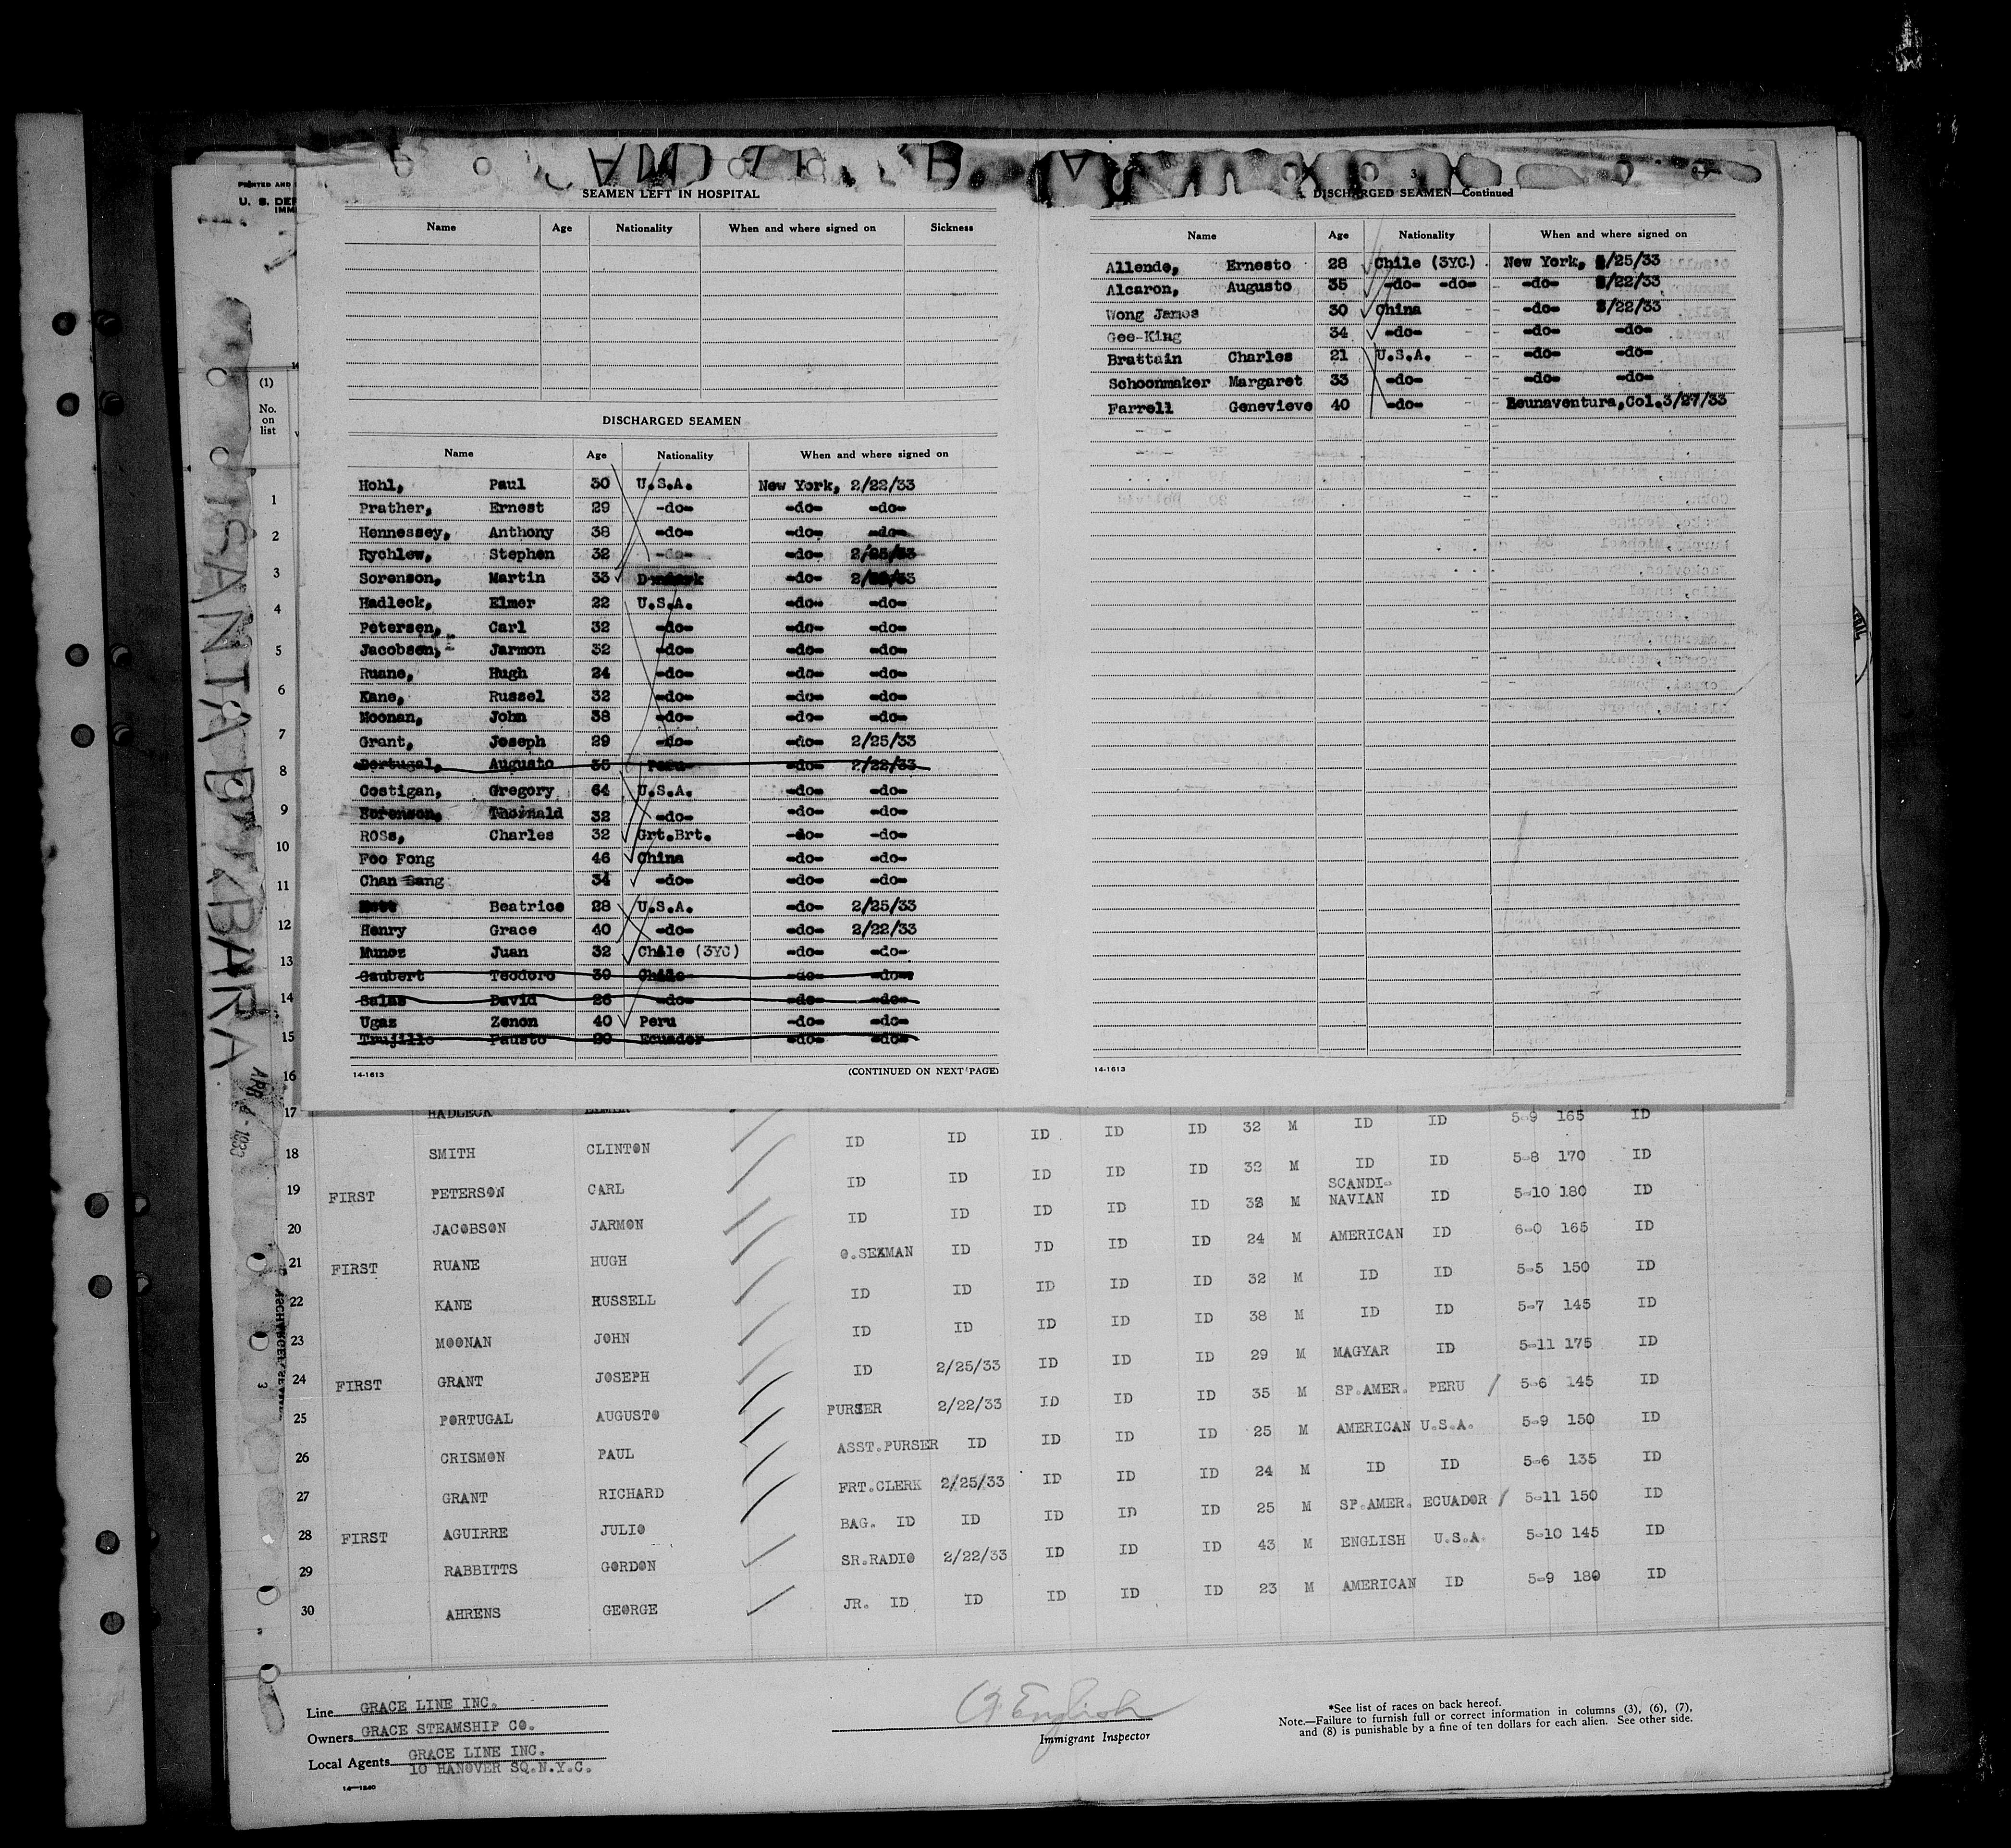 PRINTED AND
U. S. DEP
IMM
SANTA BARBARA
APR 4 - 1933
(1)
No.
on
list
SEAMEN LEFT IN HOSPITAL
Name Age Nationality When and where signed on Sickness
DISCHARGED SEAMEN
Name Age Nationality When and where signed on
Hohl, Paul 30 U.S.A. New York, 2/22/33
Prather, Ernest 29 -do- -do- -do-
Hennessey, Anthony 38 -do- -do- -do-
Rychlew, Stephen 32 -do- -do- 2/25/33
Sorenson, Martin 33 Denmark -do- 2/22/33
Hadleck, Elmer 22 U.S.A. -do- -do-
Petersen, Carl 32 -do- -do- -do-
Jacobsen, Jarmon 32 -do- -do- -do-
Ruane, Hugh 24 -do- -do- -do-
Kane, Russel 32 -do- -do- -do-
Moonan, John 38 -do- -do- -do-
Grant, Joseph 29 -do- -do- 2/25/33
Portugal, Augusto 35 Peru -do- 2/22/33
Costigan, Gregory 64 U.S.A. -do- -do-
Sorenson, Thornald 32 -do- -do- -do-
ROSs, Charles 32 Grt.Brt. -do- -do-
Foo Fong 46 China -do- -do-
Chan Sang 34 -do- -do- -do-
Beatrice 28 U.S.A. -do- 2/25/33
Henry Grace 40 -do- -do- 2/22/33
Munoz Juan 32 Chile (3YC) -do- -do-
Gaubert Teodoro 39 Chile -do- -do-
Salas David 26 -do- -do- -do-
Ugaz Zenon 40 Peru -do- -do-
Trujillo Fausto 29 Ecuador -do- -do-
14-1613 (CONTINUED ON NEXT PAGE)
3
DISCHARGED SEAMEN—Continued
Name Age Nationality When and where signed on
Allende, Ernesto 28 Chile (3YC) New York, 2/25/33
Alcaron, Augusto 35 -do- -do- -do- 2/22/33
Wong James 30 China -do- 2/22/33
Gee-King 34 -do- -do- -do-
Brattain Charles 21 U.S.A. -do- -do-
Schoonmaker Margaret 33 -do- -do- -do-
Farrell Genevieve 40 -do- Beunaventura,Col.3/27/33
14-1613
1
2
3
4
5
6
7
8
9
10
11
12
13
14
15
16
17 HADLECK ELMER 5-9 165 ID
18 SMITH CLINTON ID ID ID ID ID 32 M ID ID 5-8 170 ID
19 FIRST PETERSON CARL ID ID ID ID ID 32 M SCANDI-NAVIAN ID 5-10 180 ID
20 JACOBSON JARMON ID ID ID ID ID 32 M AMERICAN ID 6-0 165 ID
21 FIRST RUANE HUGH O.SEAMAN ID ID ID ID 24 M ID ID 5-5 150 ID
22 KANE RUSSELL ID ID ID ID ID 32 M ID ID 5-7 145 ID
23 MOONAN JOHN ID ID ID ID ID 38 M MAGYAR ID 5-11 175 ID
24 FIRST GRANT JOSEPH ID 2/25/33 ID ID ID 29 M SP.AMER. PERU 5-6 145 ID
25 PORTUGAL AUGUSTO PURSER 2/22/33 ID ID ID 35 M AMERICAN U.S.A. 5-9 150 ID
26 CRISMON PAUL ASST.PURSER ID ID ID ID 25 M ID ID 5-6 135 ID
27 GRANT RICHARD FRT.CLERK 2/25/33 ID ID ID 24 M SP.AMER. ECUADOR 5-11 150 ID
28 FIRST AGUIRRE JULIO BAG. ID ID ID ID ID 25 M ENGLISH U.S.A. 5-10 145 ID
29 RABBITTS GORDON SR.RADIO 2/22/33 ID ID ID 43 M AMERICAN ID 5-9 180 ID
30 AHRENS GEORGE JR. ID ID ID ID ID 23 M
Line GRACE LINE INC.
Owners GRACE STEAMSHIP CO.
Local Agents GRACE LINE INC.
10 HANOVER SQ.N.Y.C.
14—1240
English
Immigrant Inspector
*See list of races on back hereof.
Note.—Failure to furnish full or correct information in columns (3), (6), (7),
and (8) is punishable by a fine of ten dollars for each alien. See other side.